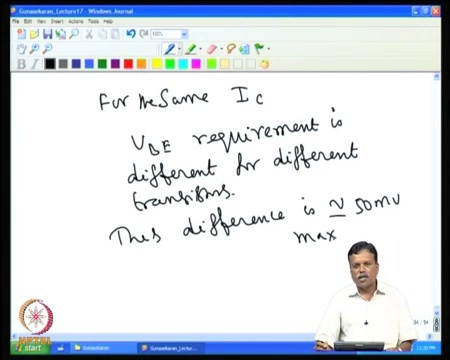 Gunasekaran_Lecture17 - Windows Journal
File Edit View Insert Actions Tools Help
For the Same Ic
VBE requirement is
different for different
transistors.
This difference is ≃ 50mV
max
NPTEL
start
Gunasekaran
Gunasekaran_Lectu...